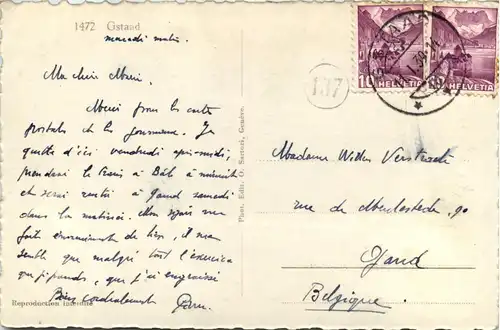 1472 Gstaad
mercredi matin.
Ma chère
Merci pour les cartes
postales et la gourmane. Je
quitte d'ici vendredi après-midi,
prendrai le train à Bâle à minuit
et serai rentré à Gand samedi
dans la matinée. Mon
fait énormément de bien, il me
semble que malgré tout l'exercice
que je prends, que j'ai engraissé
Bien cordialement
Reproduction interdite
Phot. Edit. O. Sartori, Genève.
137
GSTAAD
10 HELVETIA
10 HELVETIA
Madame Willy Verstraete
rue de 90
Gand
Belgique.